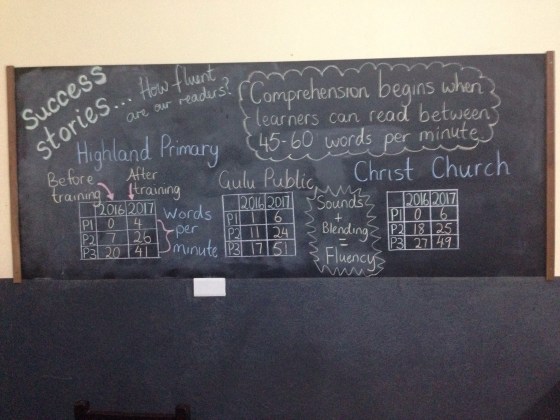 Success
stories...
How fluent
are our readers?
Comprehension begins when
learners can read between
45-60 words per minute.
Highland Primary
Before
training
After
training
2016 2017
P1 0 4
P2 7 26
P3 20 41
words
per
minute
Gulu Public
2016 2017
P1 1 6
P2 11 24
P3 17 51
Sounds
+
Blending
=
Fluency
Christ Church
2016 2017
P1 0 6
P2 18 25
P3 27 49